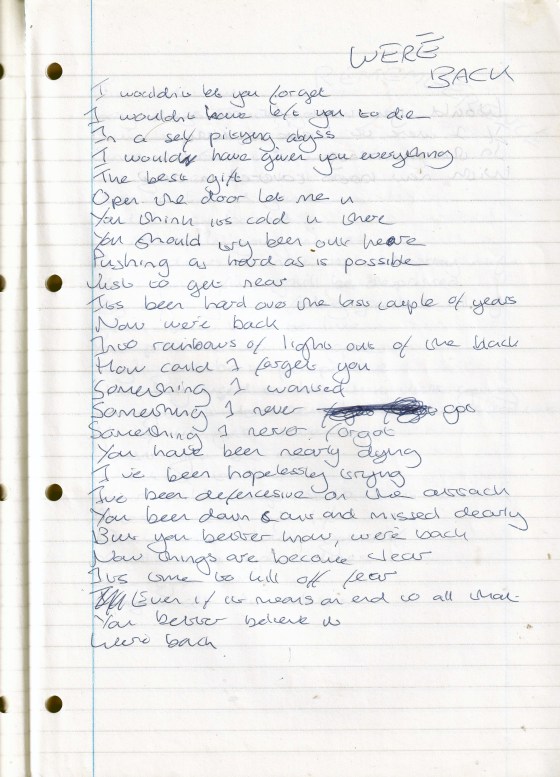 WERE
BACK
I wouldn't let you forget
I wouldn't have left you to die
In a self pitying abyss
I would have given you everything
The best gift
Open the door let me in
You think its cold in there
You should try been out here
Pushing as hard as is possible
Just to get near
Its been hard ova the last couple of years
Now we're back
Into rainbows of light out of the black
How could I forget you
Something I wanted
Something I never got
Something I never forgot
You have been nearly dying
I've been hopelessly trying
I've been defencesive on the attack
You been down & out and missed dearly
But you better know, we're back
Now things are become clear
Its time to kill off fear
Even if it means an end to all that
You better believe it
We're back